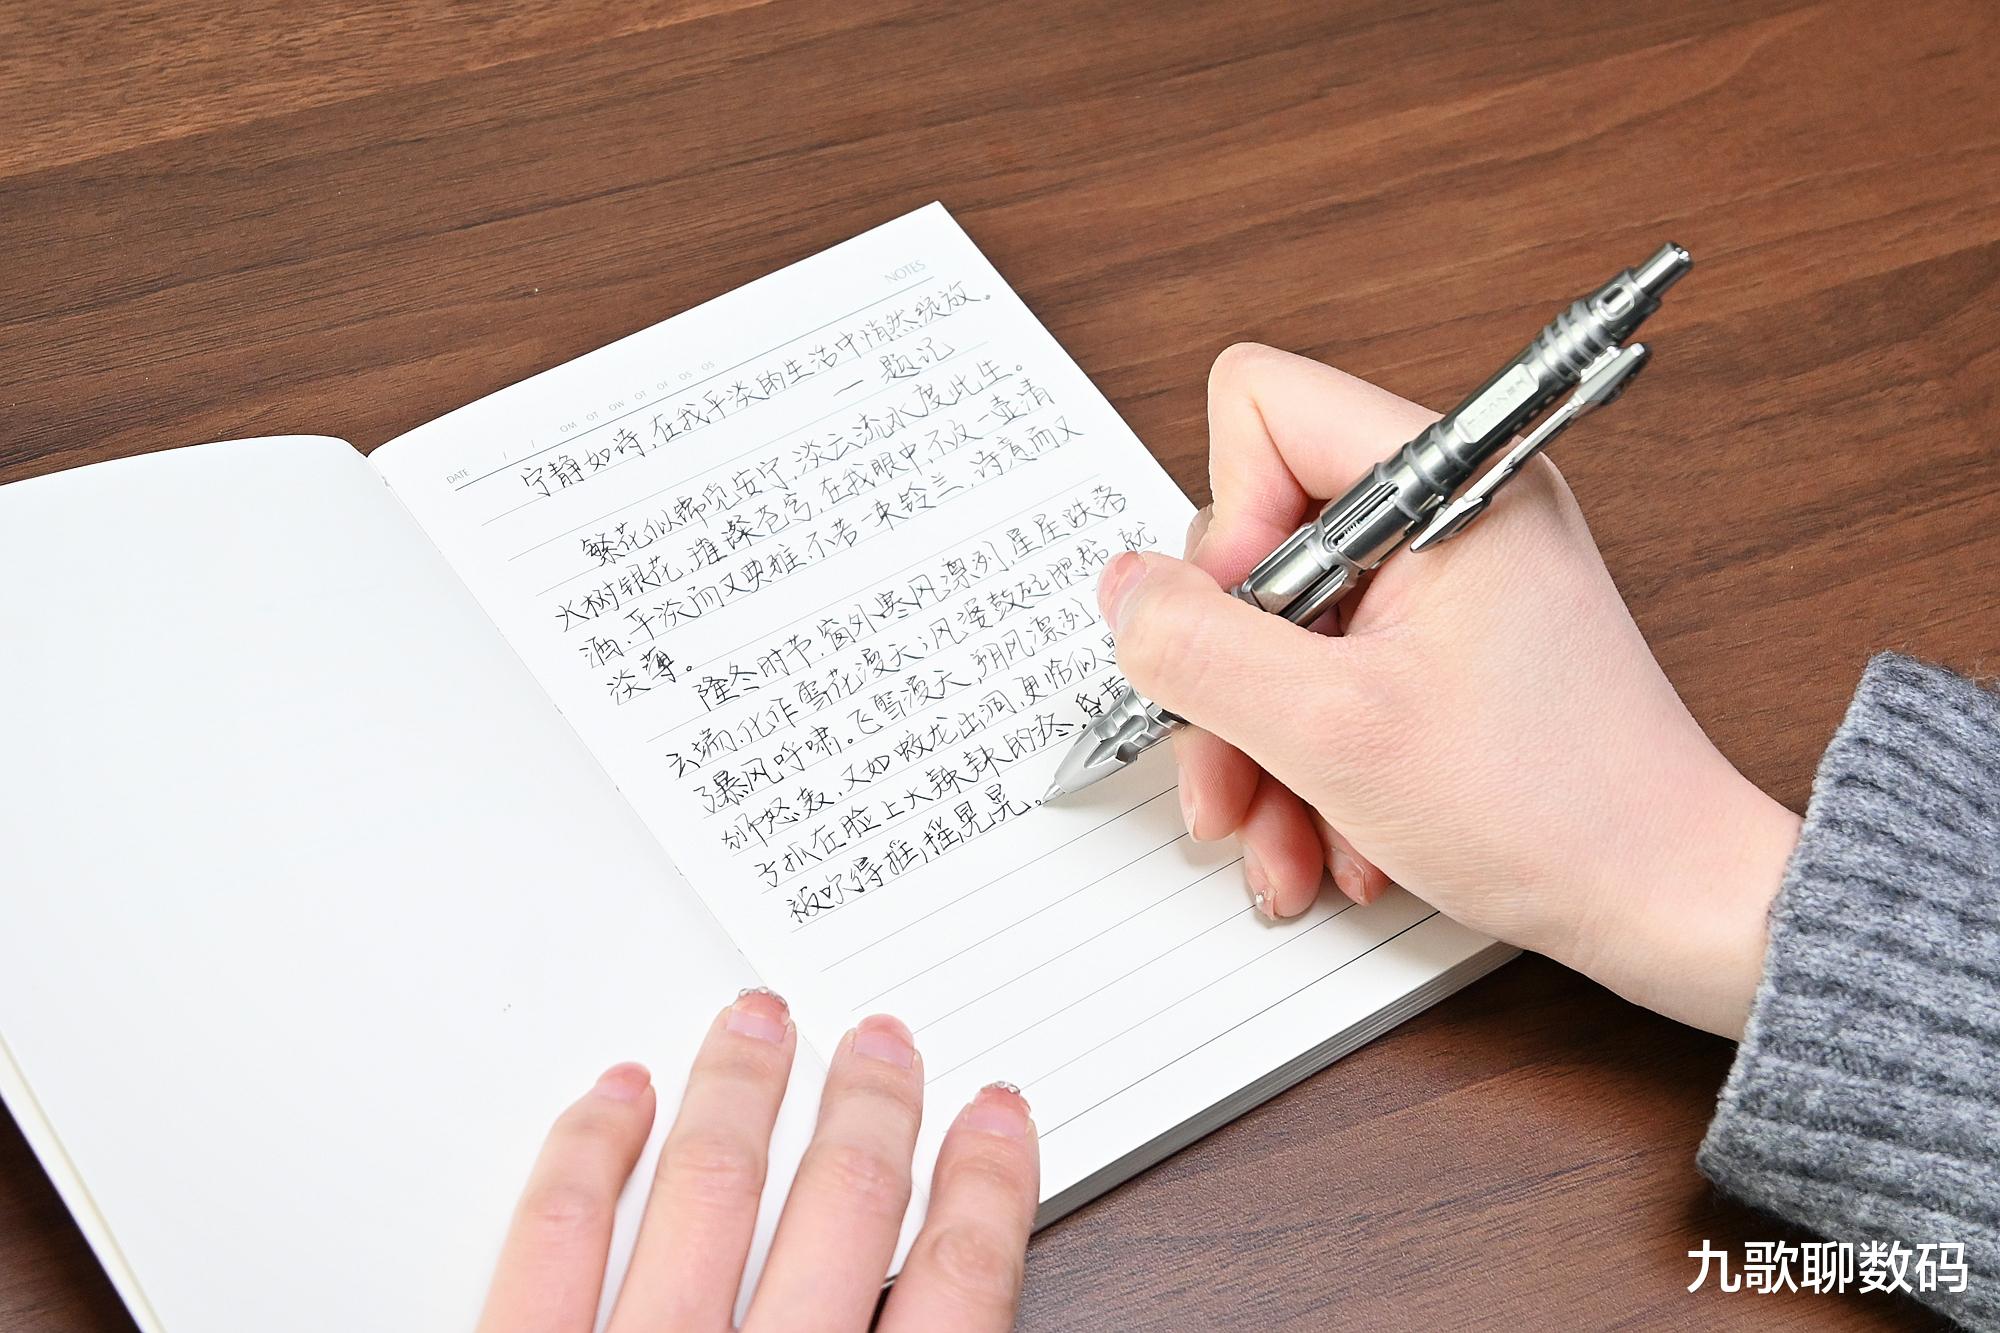 NOTES
DATE
宁静如诗,在我平淡的生活中悄然绽放。
一 题记
繁花似锦觅安宁,淡云流水度此生。
火树银花,璀璨苍穹,在我眼中,不及一壶清
酒,平淡而又典雅,不若一束铃兰,诗意而又
淡薄。
隆冬时节,窗外寒风凛冽,星星跌落
云端,化作雪花漫天;风婆鼓起腮帮,就
暴风呼啸。飞雪漫天,朔风凛冽,
狮怒轰,又如蛟龙出洞,更恰似
扒在脸上火辣辣的疼.昏黄
被吹得摇摇晃晃。
九歌聊数码